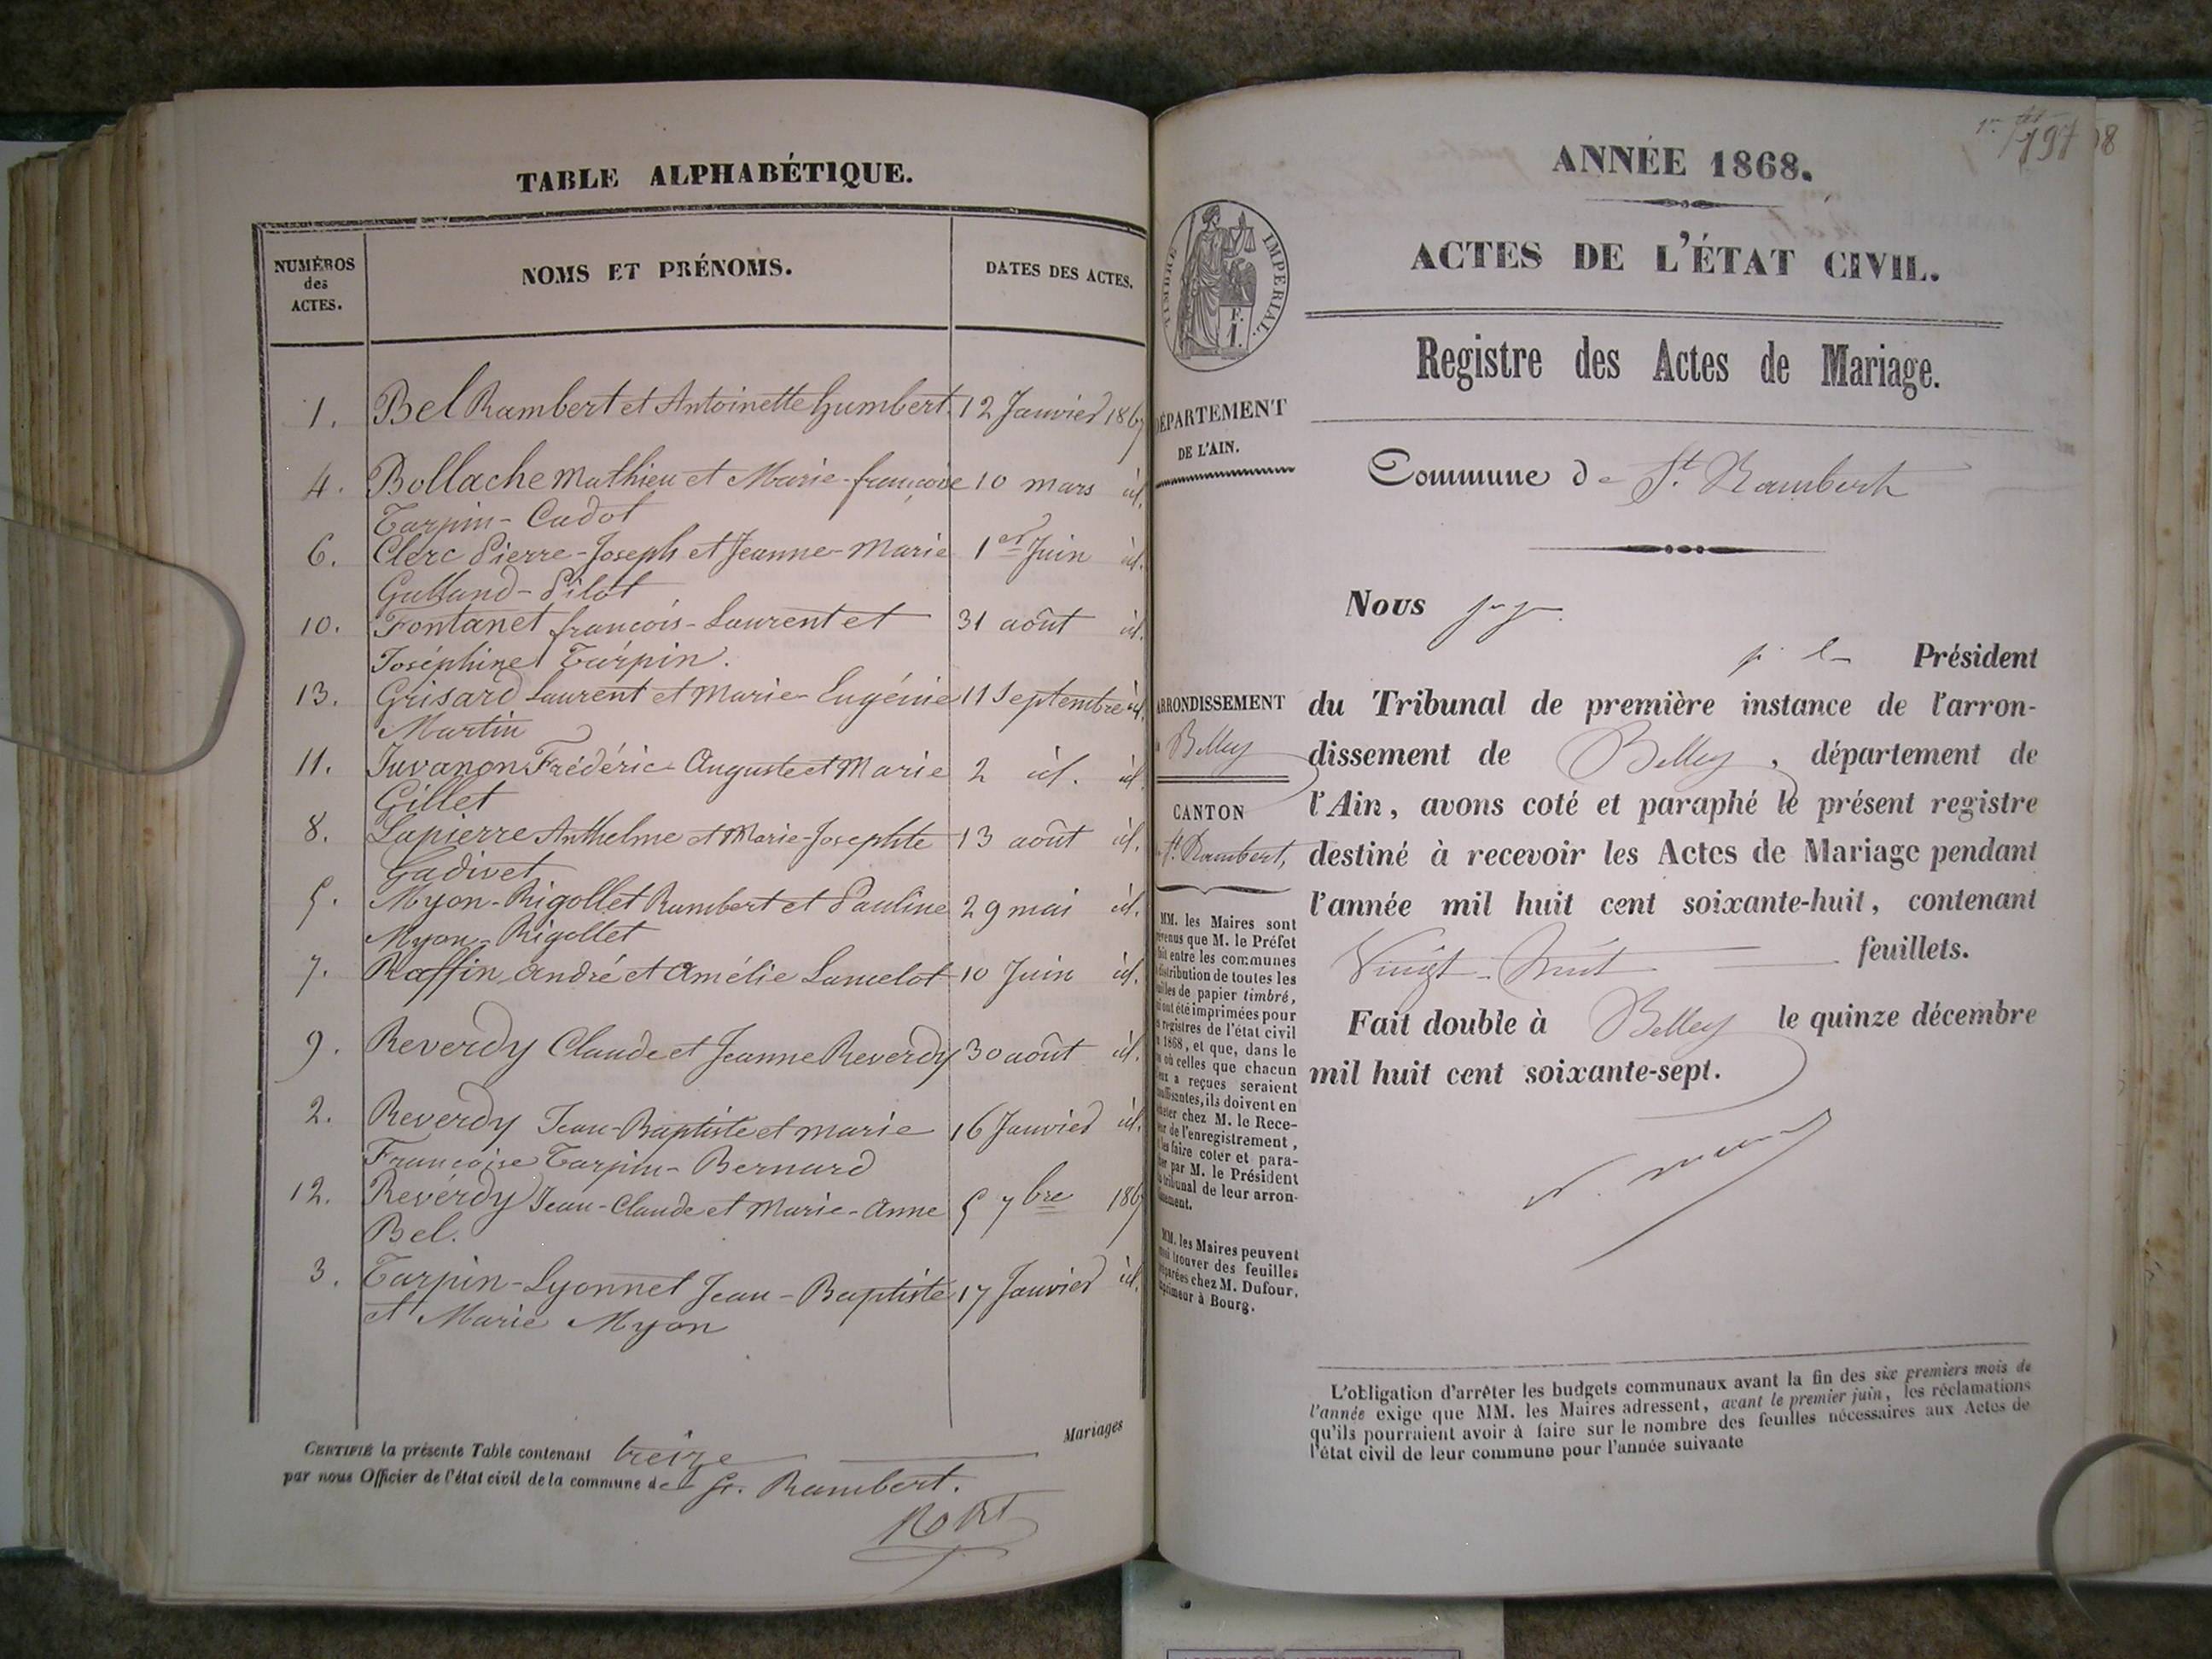 TABLE ALPHABÉTIQUE.
NUMÉROS
des
ACTES.
NOMS ET PRÉNOMS.
DATES DES ACTES.
1. Bel Rambert et Antoinette Humbert 12 Janvier 186
4. Bollache Mathieu et Marie-françoise 10 mars id.
Tarpin-Cadot
6. Clerc Pierre-Joseph et Jeanne-Marie 1er Juin id.
Galland-Pilot
10. Fontanet françois-Laurent et 31 août id.
Joséphine Tarpin.
13. Grisard Laurent et Marie-Eugénie 11 Septembre id.
Martin
11. Juvanon Frédéric-Auguste et Marie 2 id. id.
Gillet
8. Lapierre Anthelme et Marie-Josephte 13 août id.
Gadivet
5. Myon-Rigollet Rambert et Pauline 29 mai id.
Myon-Rigollet
7. Raffin André et Amélie Lancelot 10 Juin id.
9. Reverdy Claude et Jeanne Reverdy 30 août id.
2. Reverdy Jean-Baptiste et marie 16 Janvier id.
Françoise Tarpin-Bernard
12. Revérdy Jean-Claude et Marie-Anne 5 7bre 186
Bel.
3. Tarpin-Lyonnet Jean-Baptiste 17 Janvier id.
et Marie Myon
Mariages
CERTIFIÉ la présente Table contenant treize
par nous Officier de l'état civil de la commune de St. Rambert.
197
ANNÉE 1868.
ACTES DE L'ÉTAT CIVIL.
TIMBRE IMPÉRIAL.
F.
1.
Registre des Actes de Mariage.
DÉPARTEMENT
DE L'AIN.
Commune de St. Rambert
Nous juge
p. le Président
ARRONDISSEMENT
Belley
CANTON
St. Rambert,
du Tribunal de première instance de l'arron-
dissement de Belley, département de
l'Ain, avons coté et paraphé le présent registre
destiné à recevoir les Actes de Mariage pendant
l'année mil huit cent soixante-huit, contenant
Vingt-huit feuillets.
Fait double à Belley le quinze décembre
mil huit cent soixante-sept.
MM. les Maires sont
que M. le Préfet
fait entre les communes
distribution de toutes les
de papier timbré,
ont été imprimées pour
registres de l'état civil
1868, et que, dans le
où celles que chacun
a reçues seraient
ils doivent en
chez M. le Rece-
de l'enregistrement,
les faire coter et para-
par M. le Président
tribunal de leur arron-
MM. les Maires peuvent
trouver des feuilles
chez M. Dufour,
à Bourg.
L'obligation d'arrêter les budgets communaux avant la fin des six premiers mois de
l'année exige que MM. les Maires adressent, avant le premier juin, les réclamations
qu'ils pourraient avoir à faire sur le nombre des feuilles nécessaires aux Actes de
l'état civil de leur commune pour l'année suivante